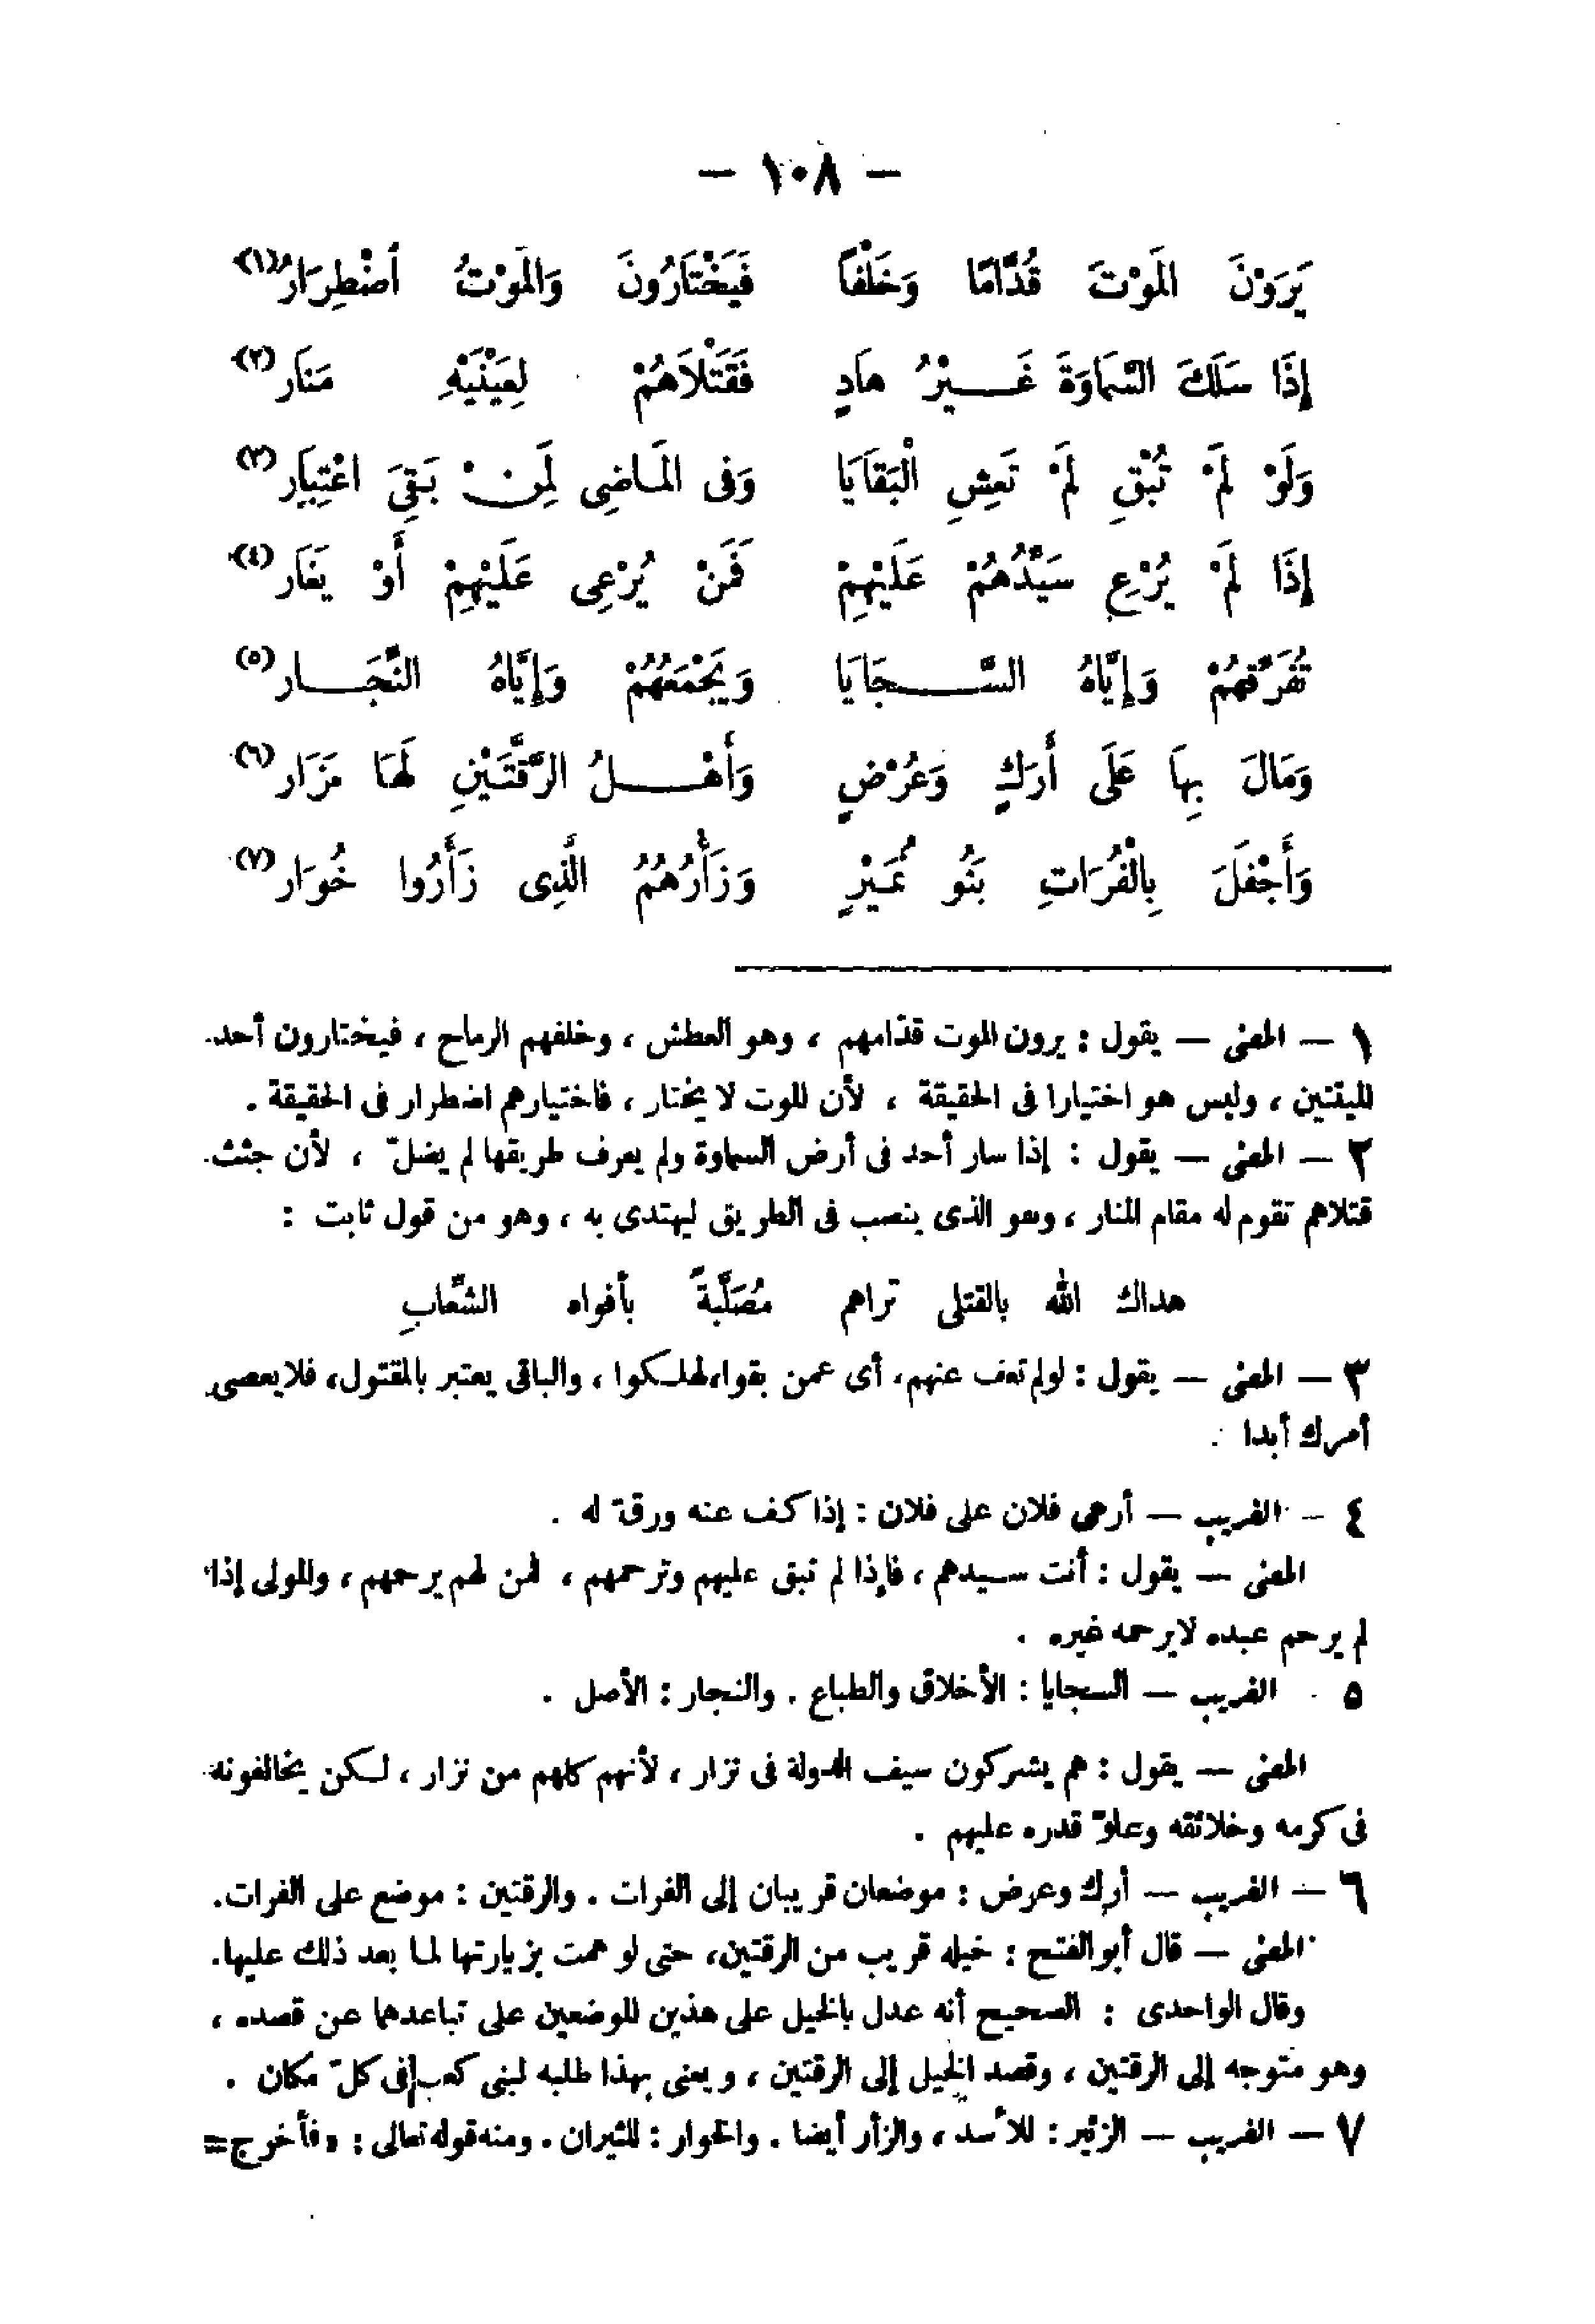 — ١٠٨ —
يَرَوْنَ المَوْتَ قُدَّامًا وَخَلْفاً فَيَخْتَارُونَ وَالمَوْتُ اُضْطِرَارُ(١)
إِذَا سَلَكَ السَّمَاوَةَ غَيْرُ هَادٍ فَقَتْلَاهُمْ لِعَيْنَيْهِ مَنَار(٢)
وَلَوْ لَمْ تُبْقِ لَمْ تَعِشِ الْبَقَايَا وَفى المَاضِى لِمَنْ بَقِىَ اعْتِبَار(٣)
إِذَا لَمْ يُرْعِ سَيِّدُهُمْ عَلَيْهِمْ فَمَنْ يُرْعِى عَلَيْهِمْ أَوْ يَغَار(٤)
تُفَرِّقُهُمْ وَإِيَّاهُ السَّجَايَا وَيَجْمَعُهُمْ وَإِيَّاهُ النَّجَار(٥)
وَمَالَ بِهَا عَلَى أَرَكٍ وَعُرْضٍ وَأَهْلُ الرَّقَّتَيْنِ لَهَا مَزَار(٦)
وَأَجْفَلَ بِالْفُرَاتِ بَنُو نُمَيْرٍ وَزَأْرُهُمُ الَّذِى زَأَرُوا خُوَار(٧)
١ — المعنى — يقول : يرون الموت قدّامهم ، وهو العطش ، وخلفهم الرماح ، فيختارون أحد
الميتتين ، وليس هو اختيارا فى الحقيقة ، لأن الموت لا يختار ، فاختيارهم اضطرار فى الحقيقة .
٢ — المعنى — يقول : إذا سار أحد فى أرض السماوة ولم يعرف طريقها لم يضلّ ، لأن جثث
قتلاهم تقوم له مقام المنار ، وهو الذى ينصب فى الطريق ليهتدى به ، وهو من قول ثابت :
هداك الله بالقتلى تراهم مُصَلَّبةً بأفواه الشِّعابِ
٣ — المعنى — يقول : لولم تعف عنهم، أى عمن بقوا،لهلكوا ، والباقى يعتبر بالمقتول، فلايعصى
أمرك أبدا .
٤ — الغريب — أرعى فلان على فلان : إذا كف عنه ورقّ له .
المعنى — يقول : أنت سيدهم ، فإذا لم تبق عليهم وترحمهم ، فمن لهم يرحمهم ، والمولى إذا
لم يرحم عبده لايرحمه غيره .
٥ - الغريب — السجايا : الأخلاق والطباع . والنجار : الأصل .
المعنى — يقول : هم يشركون سيف الدولة فى نزار ، لأنهم كلهم من نزار ، لكن يخالفونه
فى كرمه وخلائقه وعلوّ قدره عليهم .
٦ — الغريب — أرك وعرض : موضعان قريبان إلى الفرات . والرقتين : موضع على الفرات.
المعنى — قال أبوالفتح : خيله قريب من الرقتين، حتى لو همت بزيارتها لما بعد ذلك عليها.
وقال الواحدى : الصحيح أنه عدل بالخيل على هذين الموضعين على تباعدهما عن قصده ،
وهو متوجه إلى الرقتين ، وقصد الخيل إلى الرقتين ، ويعنى بهذا طلبه لبنى كعب فى كلّ مكان .
٧ — الغريب — الزئير : للأسد ، والزأر أيضا . والخوار : للثيران . ومنه قوله تعالى : «فأخرج=